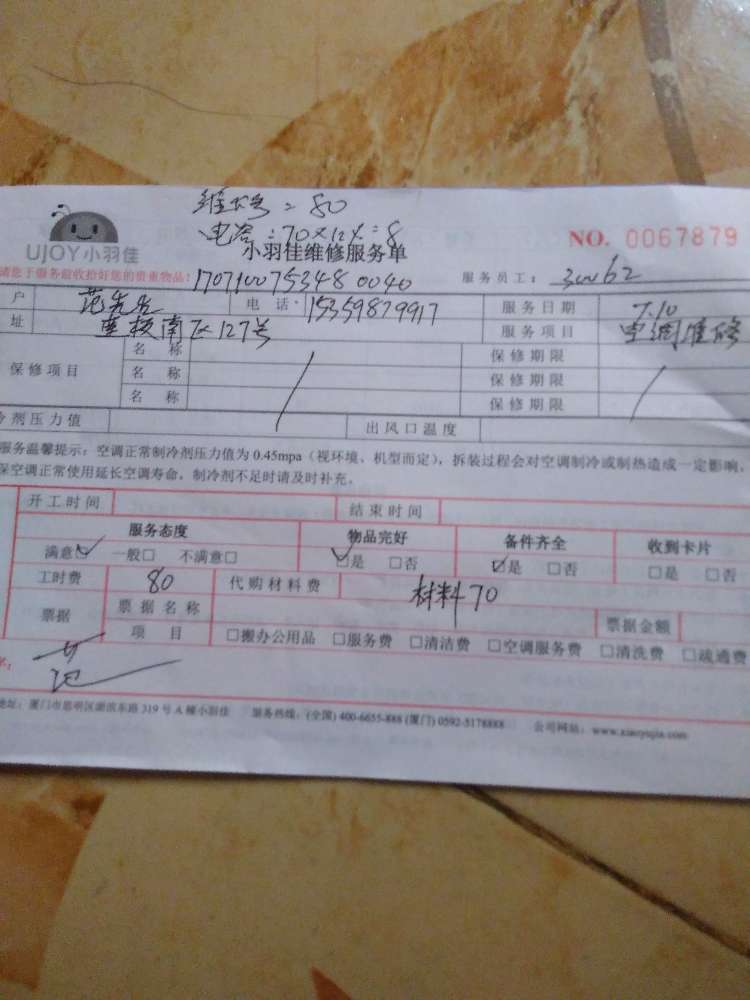 = 80
电容:70×12%=8
UJOY小羽佳
小羽佳维修服务单
NO. 0067879
请您于服务前收拾好您的贵重物品!
170710075348 0040
服务员工:
户 范先生 电话: 15359879917 服务日期 7.10
址 南区127号 服务项目 空调维修
保修项目
名称 保修期限
名称 保修期限
名称 保修期限
冷剂压力值 出风口温度
服务温馨提示:空调正常制冷剂压力值为0.45mpa(视环境、机型而定),拆装过程会对空调制冷或制热造成一定影响,
保空调正常使用延长空调寿命,制冷剂不足时请及时补充。
开工时间 结束时间
服务态度 物品完好 备件齐全 收到卡片
满意☑ 一般□ 不满意□ ☑是 □否 ☑是 □否 □是 □否
工时费 80 代购材料费 材料70
票据 票据名称 票据金额
项目 □搬办公用品 □服务费 □清洁费 □空调服务费 □清洗费 □疏通费
地址:厦门市思明区湖滨东路319号A幢小羽佳 服务热线:(全国)400-6655-888 (厦门)0592-5178888 公司网站:www.xiaoyujia.com